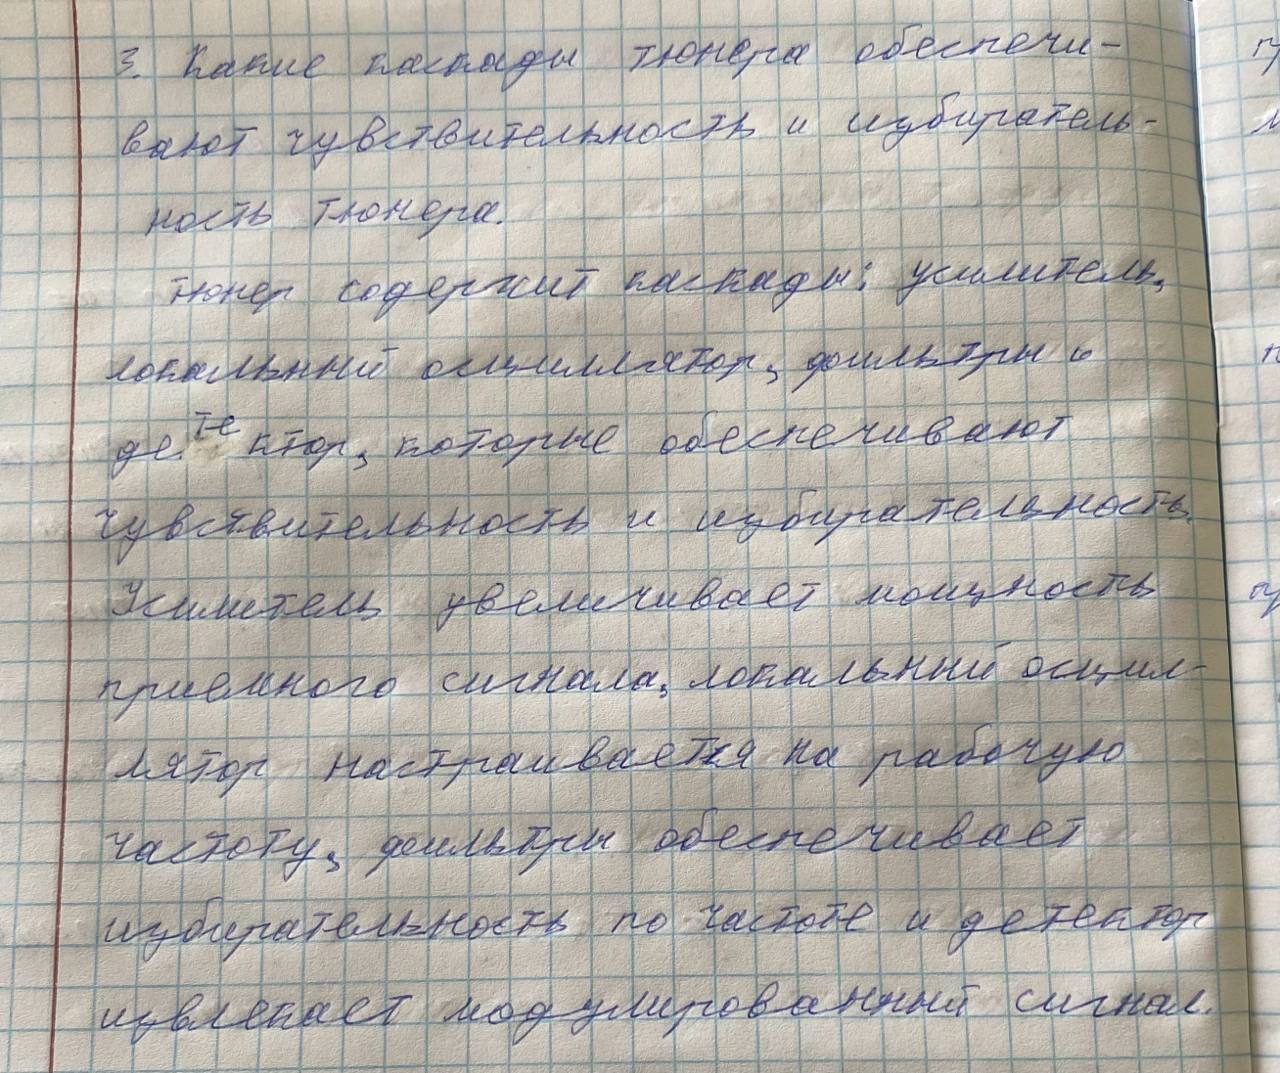 3. Какие каскады тюнера обеспечи-
вают чувствительность и избиратель-
ность тюнера.
тюнер содержит каскады: усилитель,
локальный осциллятор, фильтры и
детектор, которые обеспечивают
чувствительность и избирательность.
Усилитель увеличивает мощность
приемного сигнала, локальный осцил-
лятор настраивается на рабочую
частоту, фильтры обеспечивает
избирательность по частоте и детектор
извлекает модулированный сигнал.